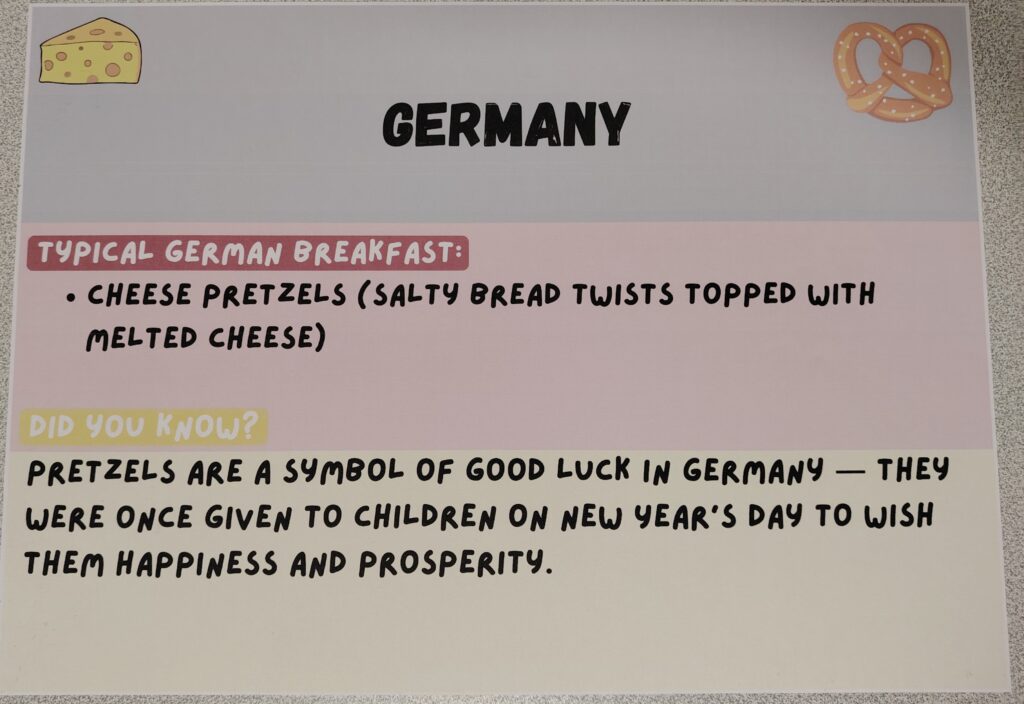 GERMANY
TYPICAL GERMAN BREAKFAST:
• CHEESE PRETZELS (SALTY BREAD TWISTS TOPPED WITH
MELTED CHEESE)
DID YOU KNOW?
PRETZELS ARE A SYMBOL OF GOOD LUCK IN GERMANY — THEY
WERE ONCE GIVEN TO CHILDREN ON NEW YEAR'S DAY TO WISH
THEM HAPPINESS AND PROSPERITY.